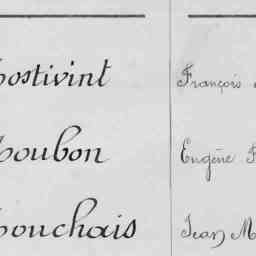 ostivint François
oubon Eugène
ouchais Jean M